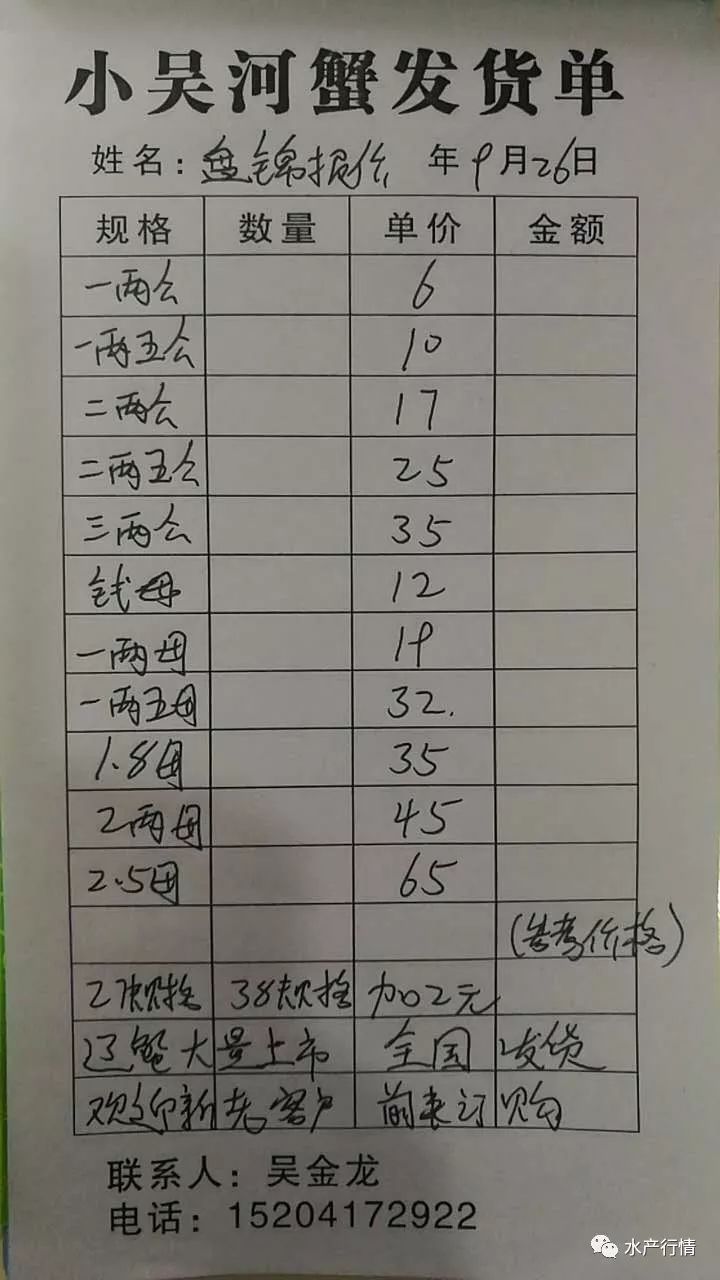 小吴河蟹发货单
姓名：盘锦报价 年9月26日
规格 数量 单价 金额
一两公 6
一两五公 10
二两公 17
二两五公 25
三两公 35
钱母 12
一两母 19
一两五母 32.
1.8母 35
2两母 45
2.5母 65
(参考价格)
27规格 38规格 加02元
辽蟹大量上市 全国发货
欢迎新老客户 前来订购
联系人：吴金龙
电话：15204172922
水产行情